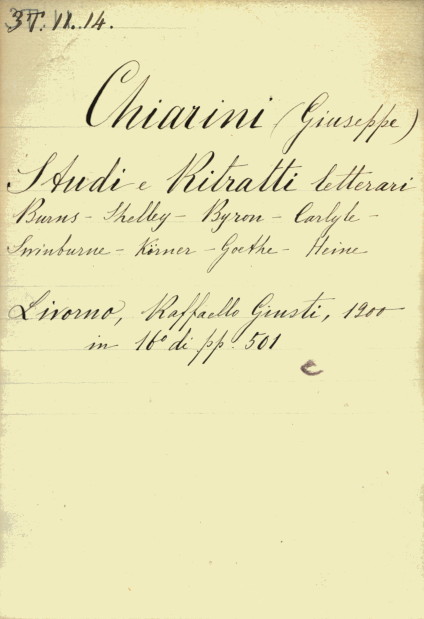 3T. VI. 14.
Chiarini (Giuseppe)
Studi e Ritratti letterari
Burns - Shelley - Byron - Carlyle -
Swinburne - Körner - Goethe - Heine
Livorno, Raffaello Giusti, 1900
in 16° di pp. 501